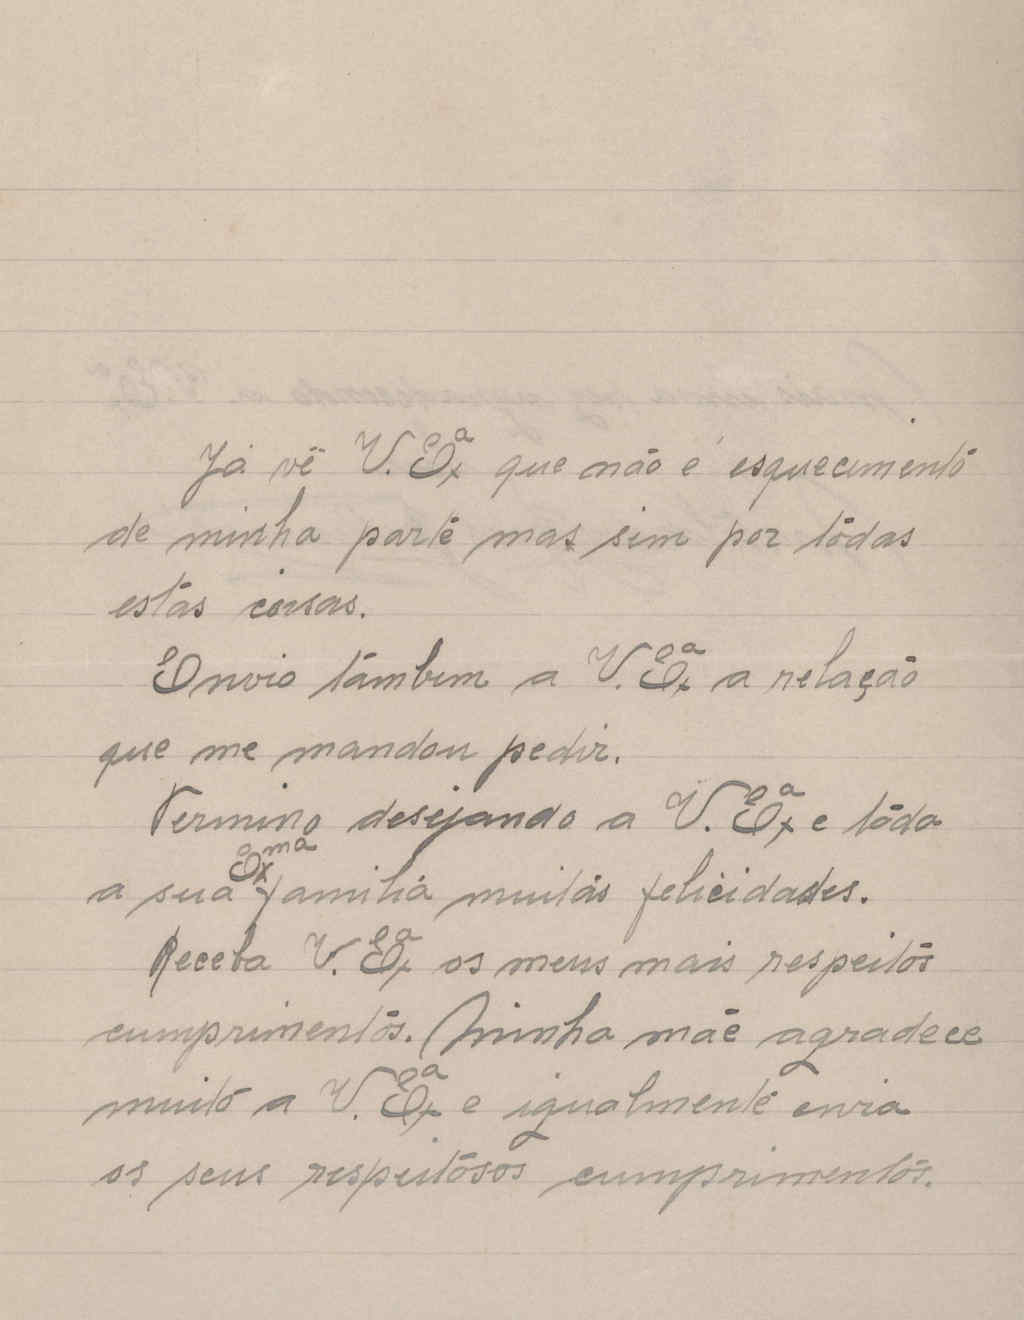 Já vê V. Exª que não é esquecimento
de minha parte mas sim por tôdas
estas coisas.
Envio tambem a V. Exª a relação
que me mandou pedir.
Termino desejando a V. Exª e tôda
a sua Exma familia muitas felicidades.
Receba V. Exª os meus mais respeitos
cumprimentos. Minha mãe agradece
muito a V. Exª e igualmente envia
os seus respeitosos cumprimentos.